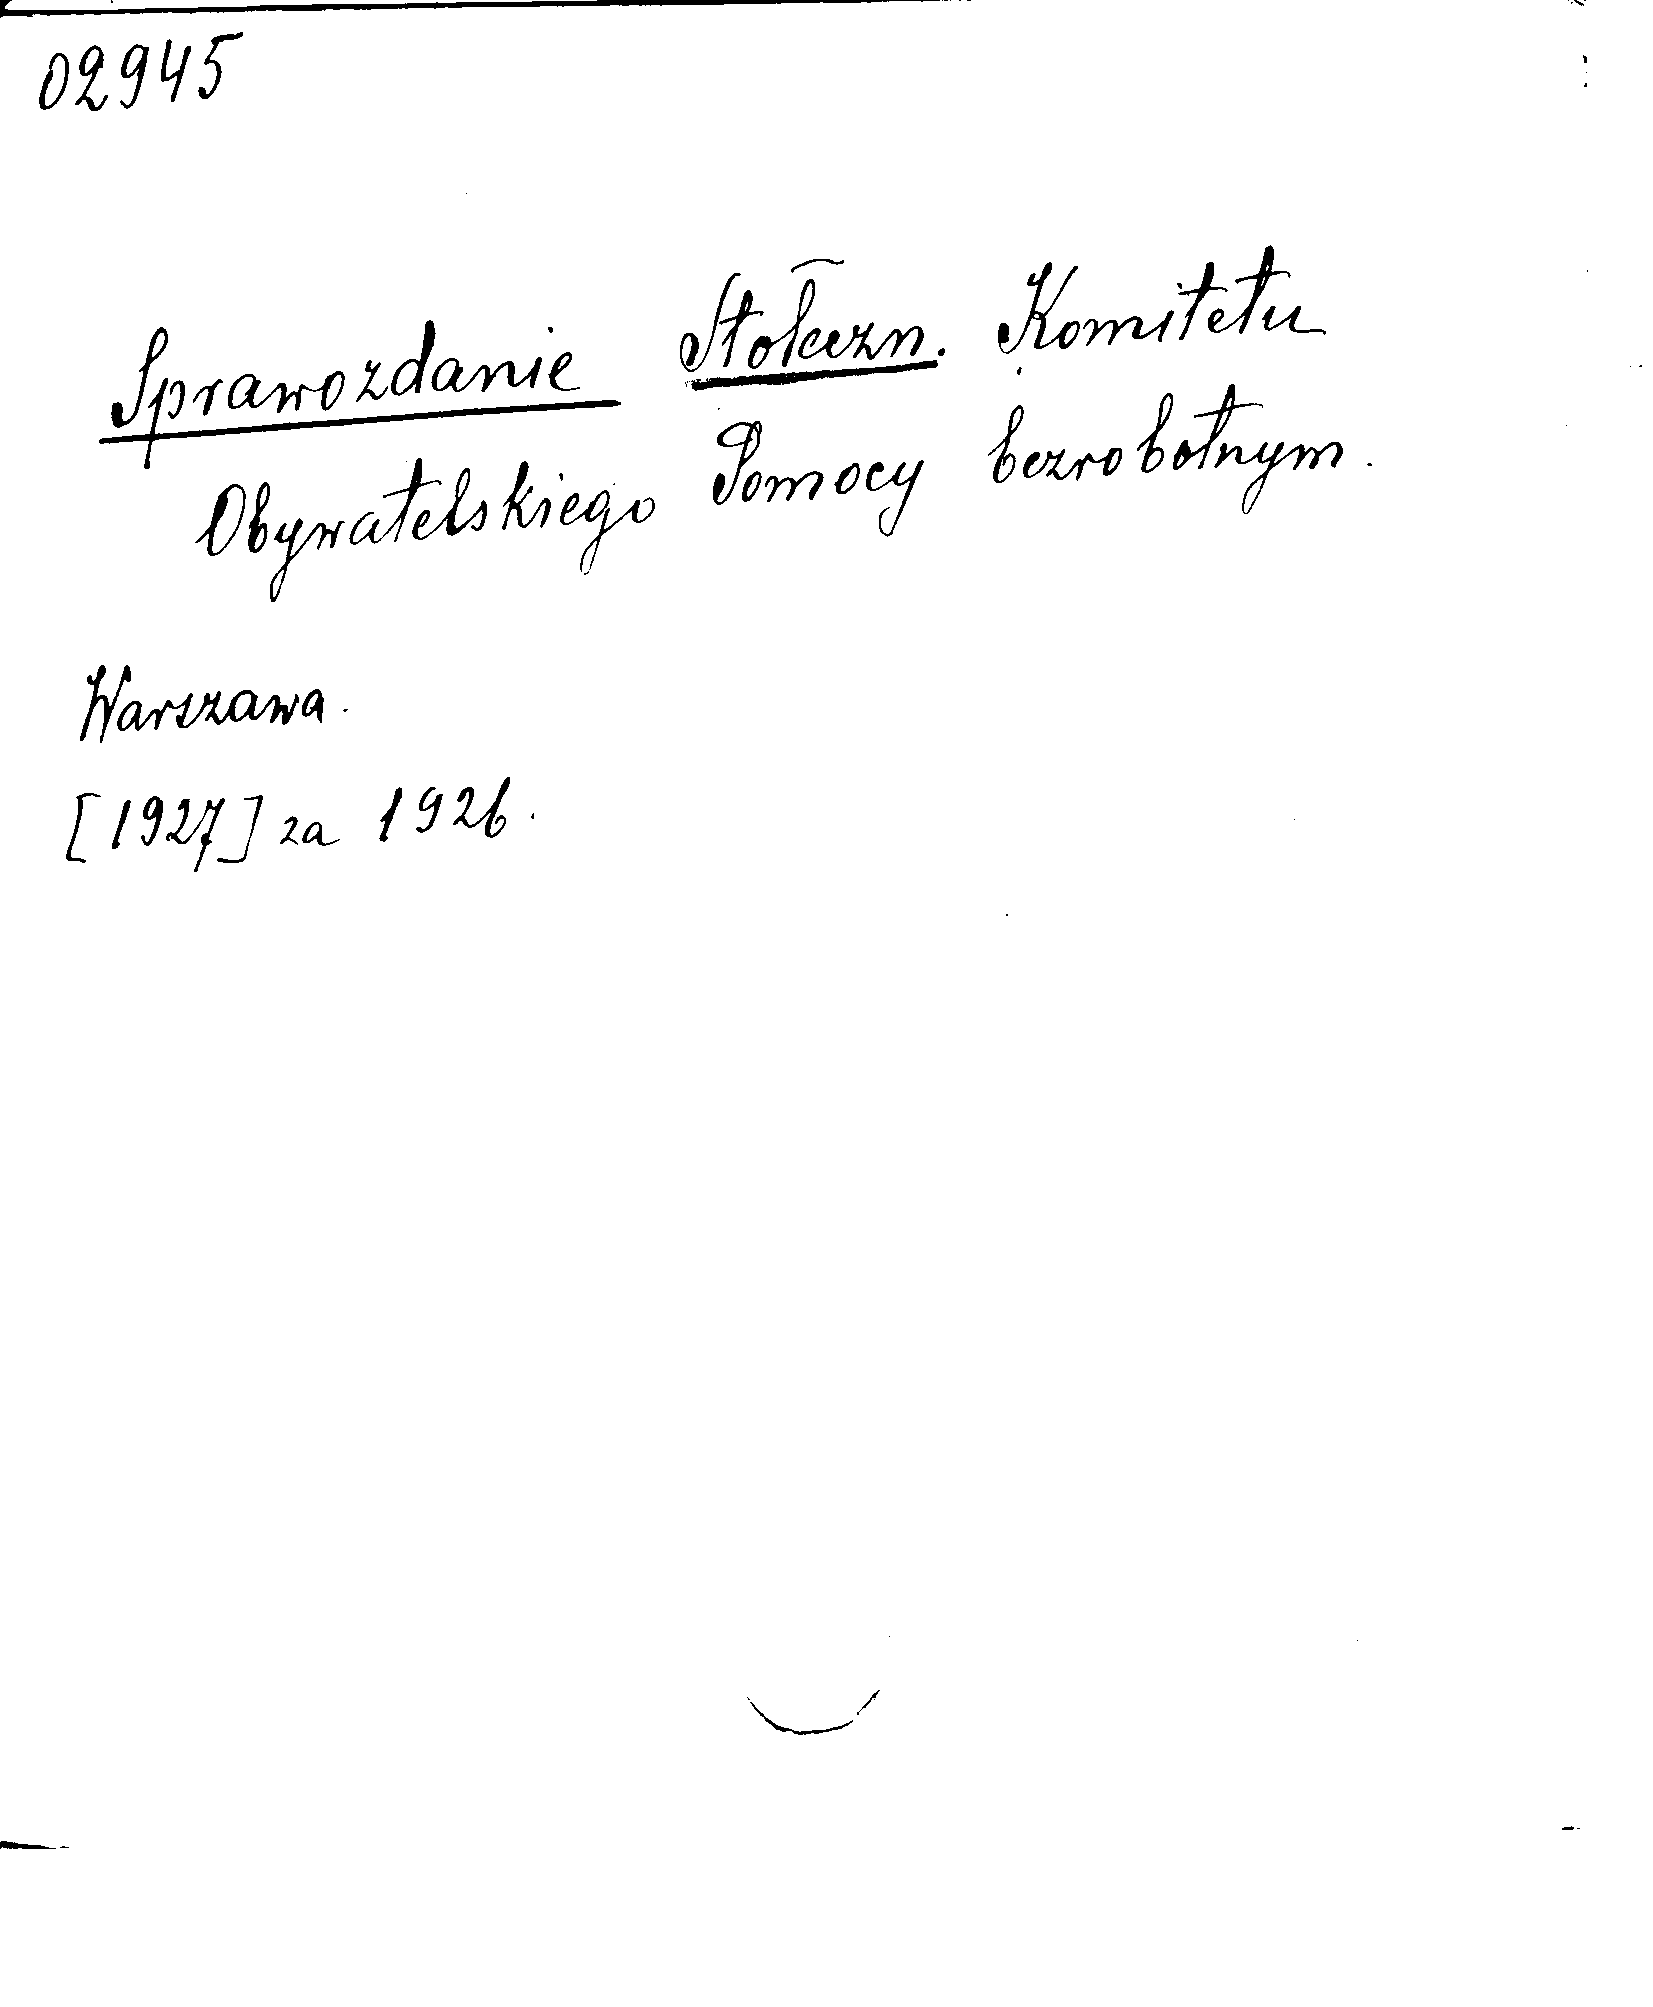 02945
Sprawozdanie Stołeczn. Komitetu
Obywatelskiego Pomocy bezrobotnym.
Warszawa.
[1927] za 1926.